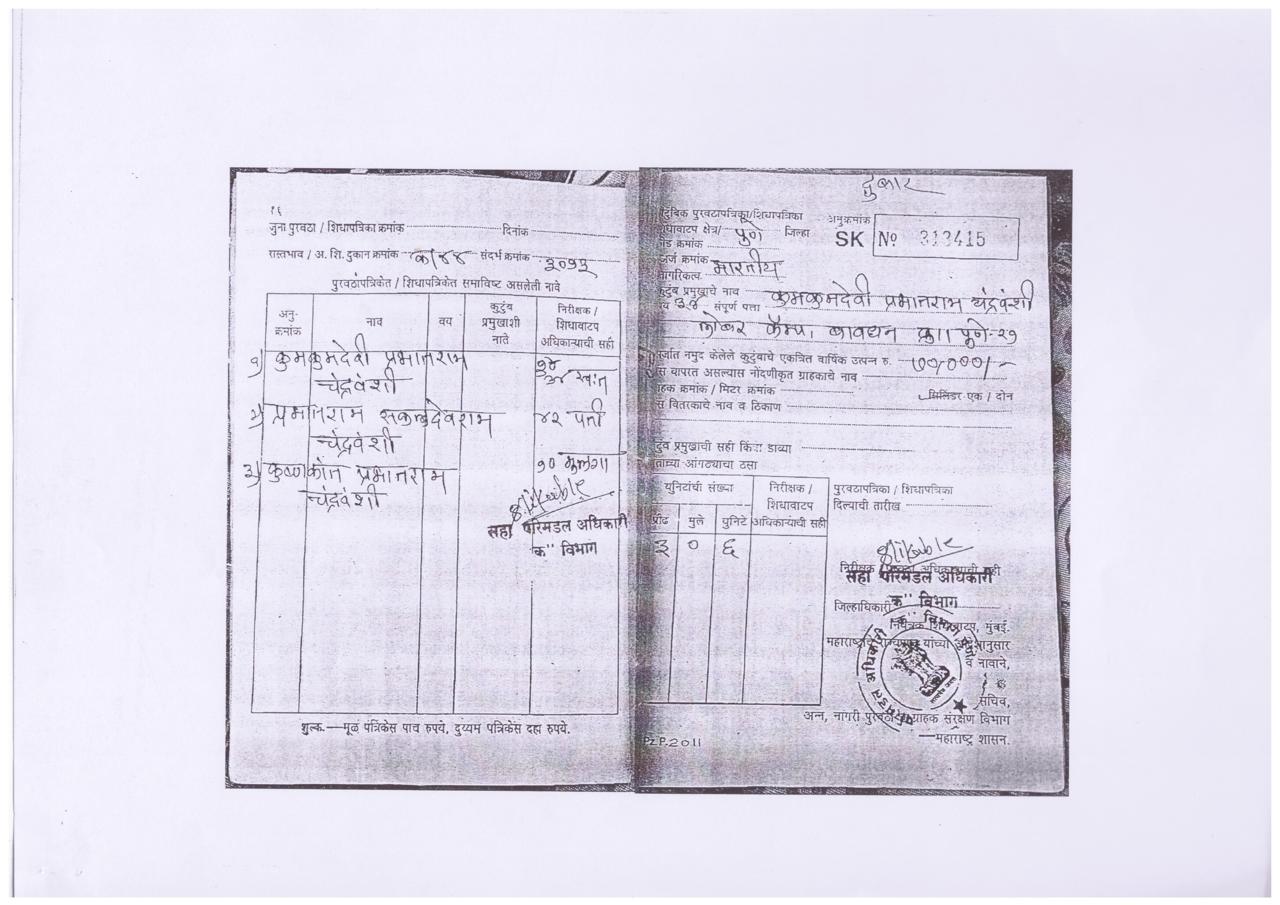 १६
जुना पुरवठा / शिधापत्रिका क्रमांक दिनांक
रास्तभाव / अ. शि. दुकान क्रमांक क/४४ संदर्भ क्रमांक ३०५३
पुरवठापत्रिकेत / शिधापत्रिकेत समाविष्ट असलेली नावे
अनु-क्रमांक नाव वय कुटुंब प्रमुखाशी नाते निरीक्षक / शिधावाटप अधिकाऱ्याची सही
१) कुमकुमदेवी प्रभातराम
चंद्रवंशी ३४ स्वतः
२) प्रभातराम देवराम ४२ पती
चंद्रवंशी
३) कृष्णकांत प्रभातराम १० मुलगा
चंद्रवंशी
सहा परिमंडल अधिकारी
"क" विभाग
शुल्क.—मूळ पत्रिकेस पाच रुपये, दुय्यम पत्रिकेस दहा रुपये.
दुबार
पुरवठापत्रिका/शिधापत्रिका अनुक्रमांक
क्षेत्र/ पुणे जिल्हा SK No 313415
क्रमांक
क्रमांक
भारतीय
प्रमुखाचे नाव कुमकुमदेवी प्रभातराम चंद्रवंशी
३४ संपूर्ण पत्ता
बावधन पुणे-२१
नमुद केलेले कुटुंबाचे एकत्रित वार्षिक उत्पन्न रु. ७०,०००/-
वापरत असल्यास नोंदणीकृत ग्राहकाचे नाव
क्रमांक / मिटर क्रमांक सिलिंडर एक / दोन
वितरकाचे नाव व ठिकाण
प्रमुखाची सही किंवा डाव्या
आंगठ्याचा ठसा
युनिटांची संख्या निरीक्षक / शिधावाटप अधिकाऱ्याची सही
प्रौढ मुले युनिटे
३ ० ६
पुरवठापत्रिका / शिधापत्रिका
दिल्याची तारीख
सहा परिमंडल अधिकारी
जिल्हाधिकारी "क" विभाग
नियंत्रक शिधावाटप, मुंबई.
महाराष्ट्राचे राज्यपाल यांच्या आदेशानुसार
व नावाने,
सचिव,
अन्न, नागरी पुरवठा व ग्राहक संरक्षण विभाग
—महाराष्ट्र शासन.
PZP.2011